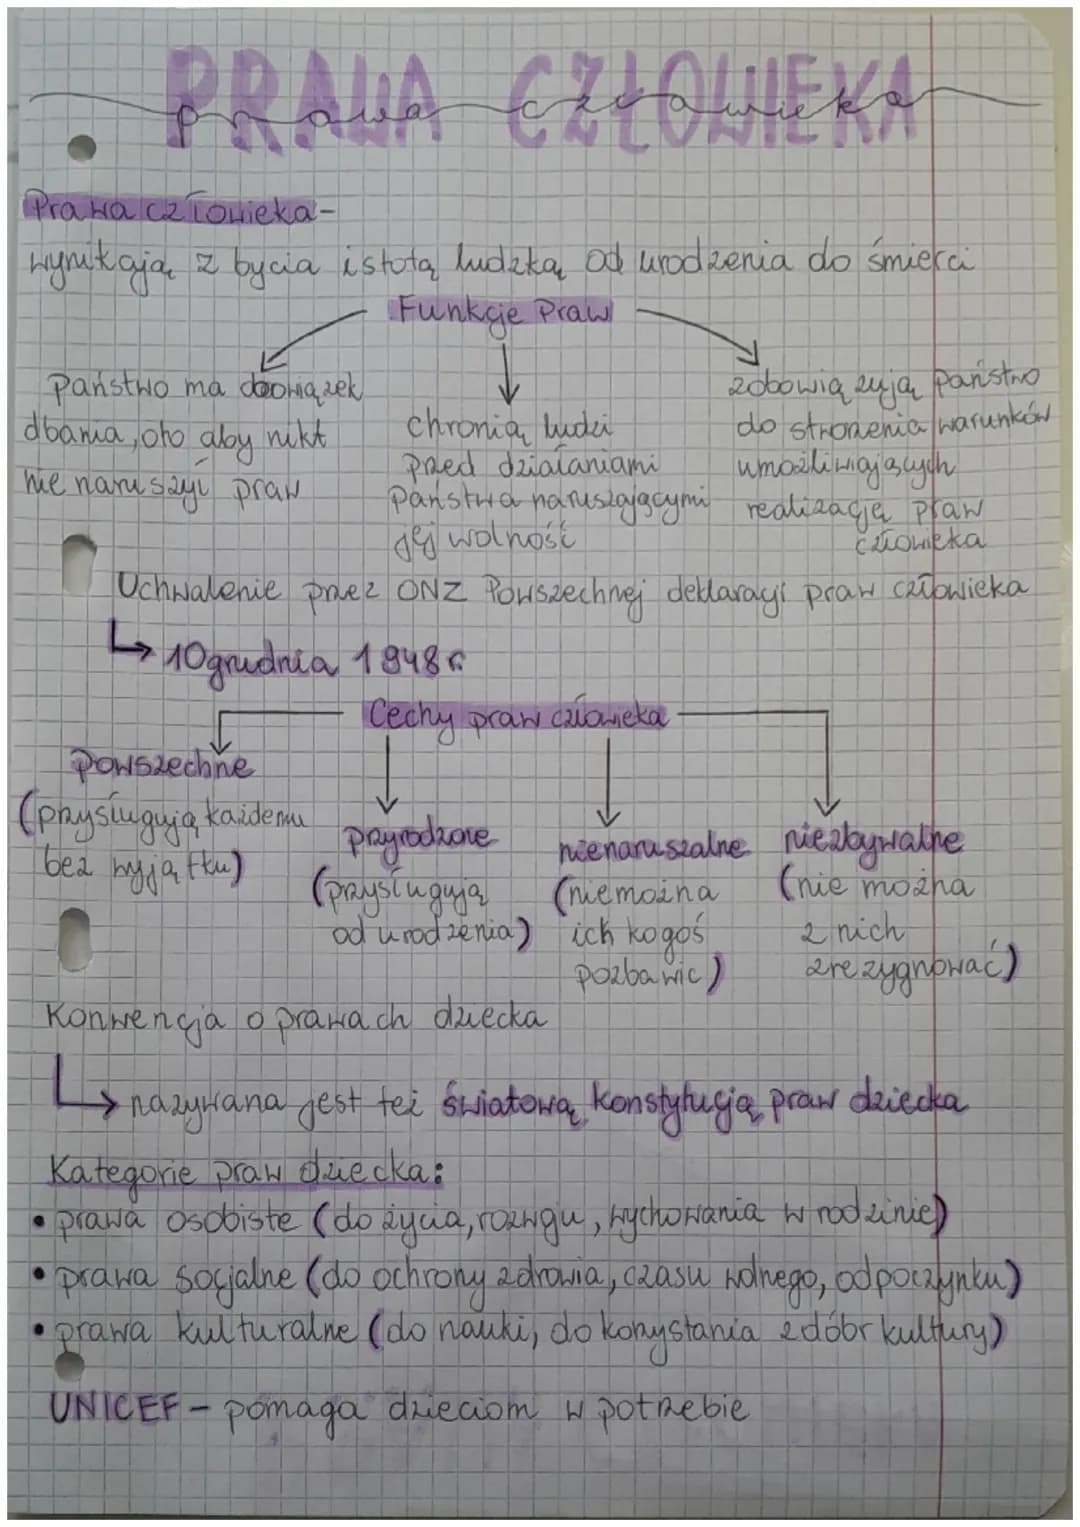 PRAWA CZŁOWIEKA
prawa człowieka
Prawa człowieka-
wynikają z bycia istotą ludzką od urodzenia do śmierci
Funkcje Praw
Państwo ma obowiązek
dbania, oto aby nikt
nie naruszył praw
chronią ludzi
przed działaniami
Państwa naruszającymi
jej wolność
zobowiązują państwo
do stworzenia warunków
umożliwiających
realizację praw
człowieka
Uchwalenie przez ONZ Powszechnej deklaracji praw człowieka
↳ 10 grudnia 1948r
Cechy praw człowieka
Powszechne
(przysługują każdemu
bez wyjątku)
przyrodzone
(przysługują
od urodzenia)
nienaruszalne
(niemożna
ich kogoś
pozbawic)
niezbywalne
(nie można
z nich
zrezygnować)
Konwencja o prawach dziecka
↳ nazywana jest też światową konstytucją praw dziecka
Kategorie praw dziecka:
• prawa osobiste (do życia, rozwoju, wychowania w rodzinie)
• prawa socjalne (do ochrony zdrowia, czasu wolnego, odpoczynku)
• prawa kulturalne (do nauki, do korzystania z dóbr kultury)
UNICEF - pomaga dzieciom w potrzebie